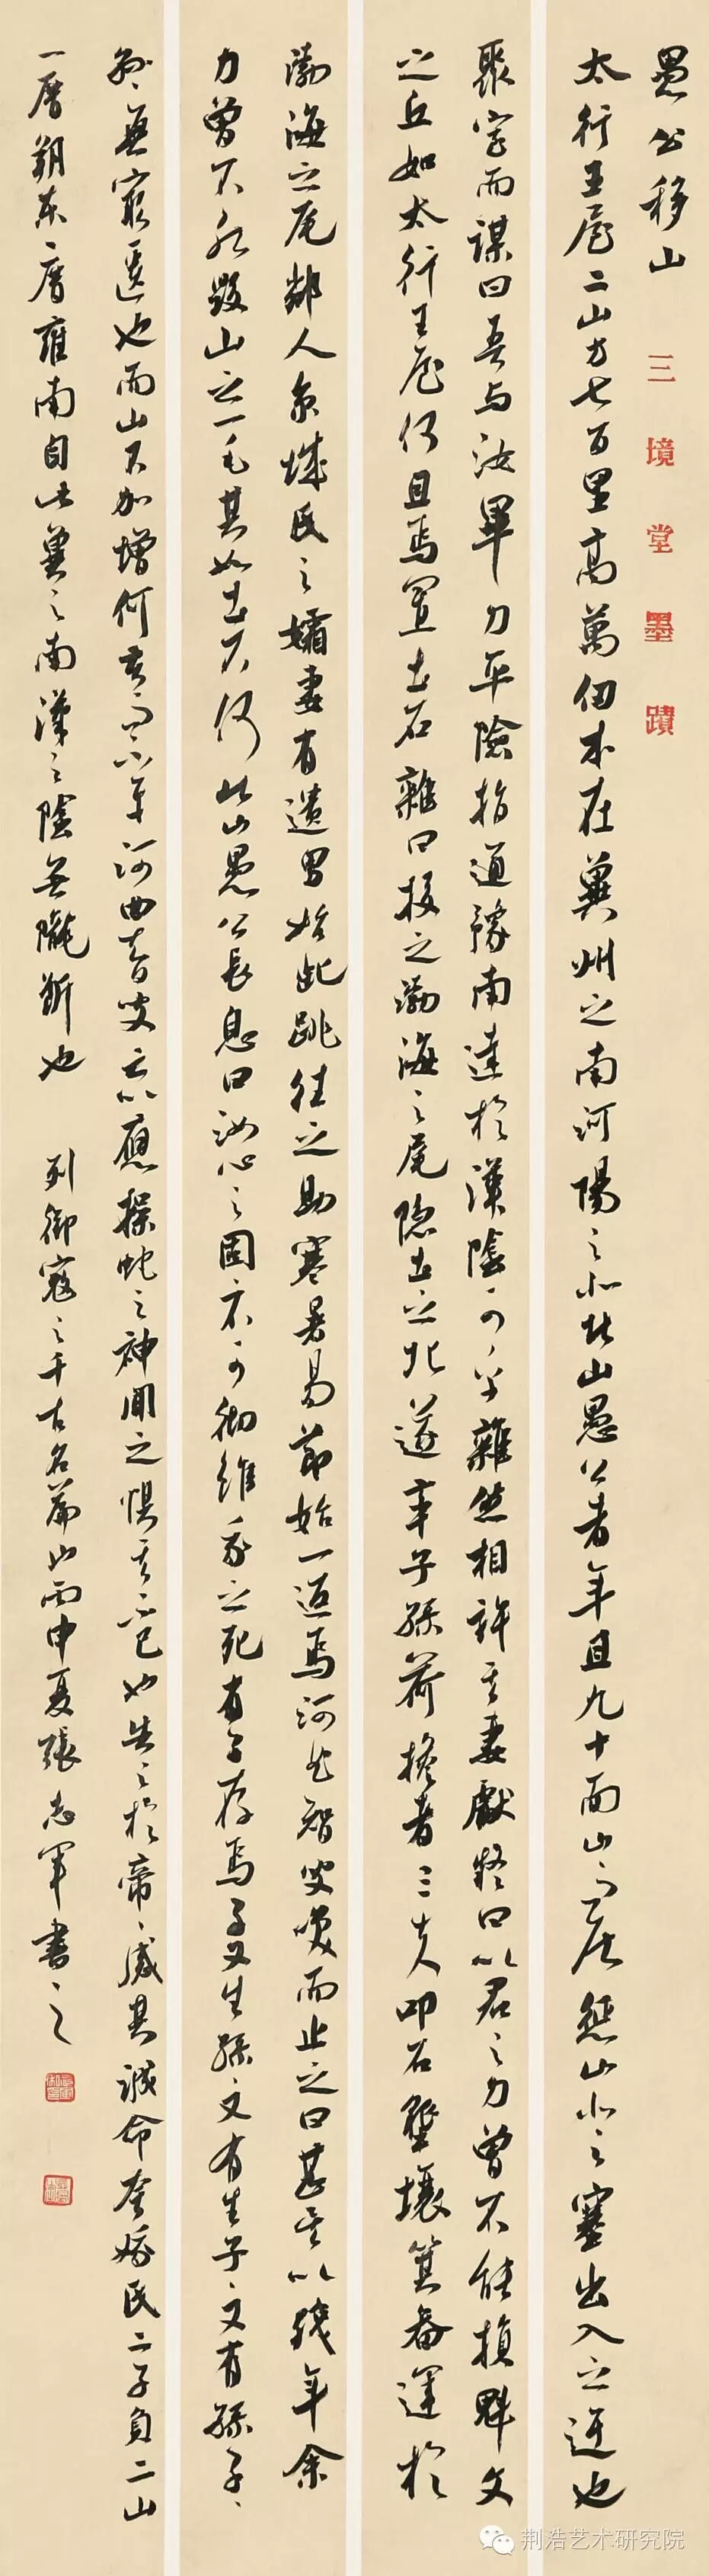 愚公移山 三境堂墨蹟
太行王屋二山方七百里高萬仞本在冀州之南河陽之北北山愚公者年且九十面山而居懲山北之塞出入之迂也
聚室而謀曰吾与汝畢力平險指通豫南達於漢陰可乎雜然相許其妻獻疑曰以君之力曾不能損魁父
之丘如太行王屋何且焉置土石雜曰投之渤海之尾隱土之北遂率子孫荷擔者三夫叩石墾壤箕畚運於
渤海之尾鄰人京城氏之孀妻有遺男始齔跳往之助寒暑易節始一返焉河曲智叟笑而止之曰甚矣以殘年余
力曾不能毀山之一毛其如土石何北山愚公長息曰汝心之固々不可徹雖我之死有子存焉子又生孫々又有生子々又有孫子々
孫々無窮匱也而山不加增何苦而不平河曲智叟亡以應操蛇之神聞之懼其不已也告之於帝々感其誠命夸娥氏二子負二山
一厝朔東一厝雍南自此冀之南漢之陰無隴斷也 列御寇之千古名篇也丙申夏張志軍書之
荆浩艺术研究院